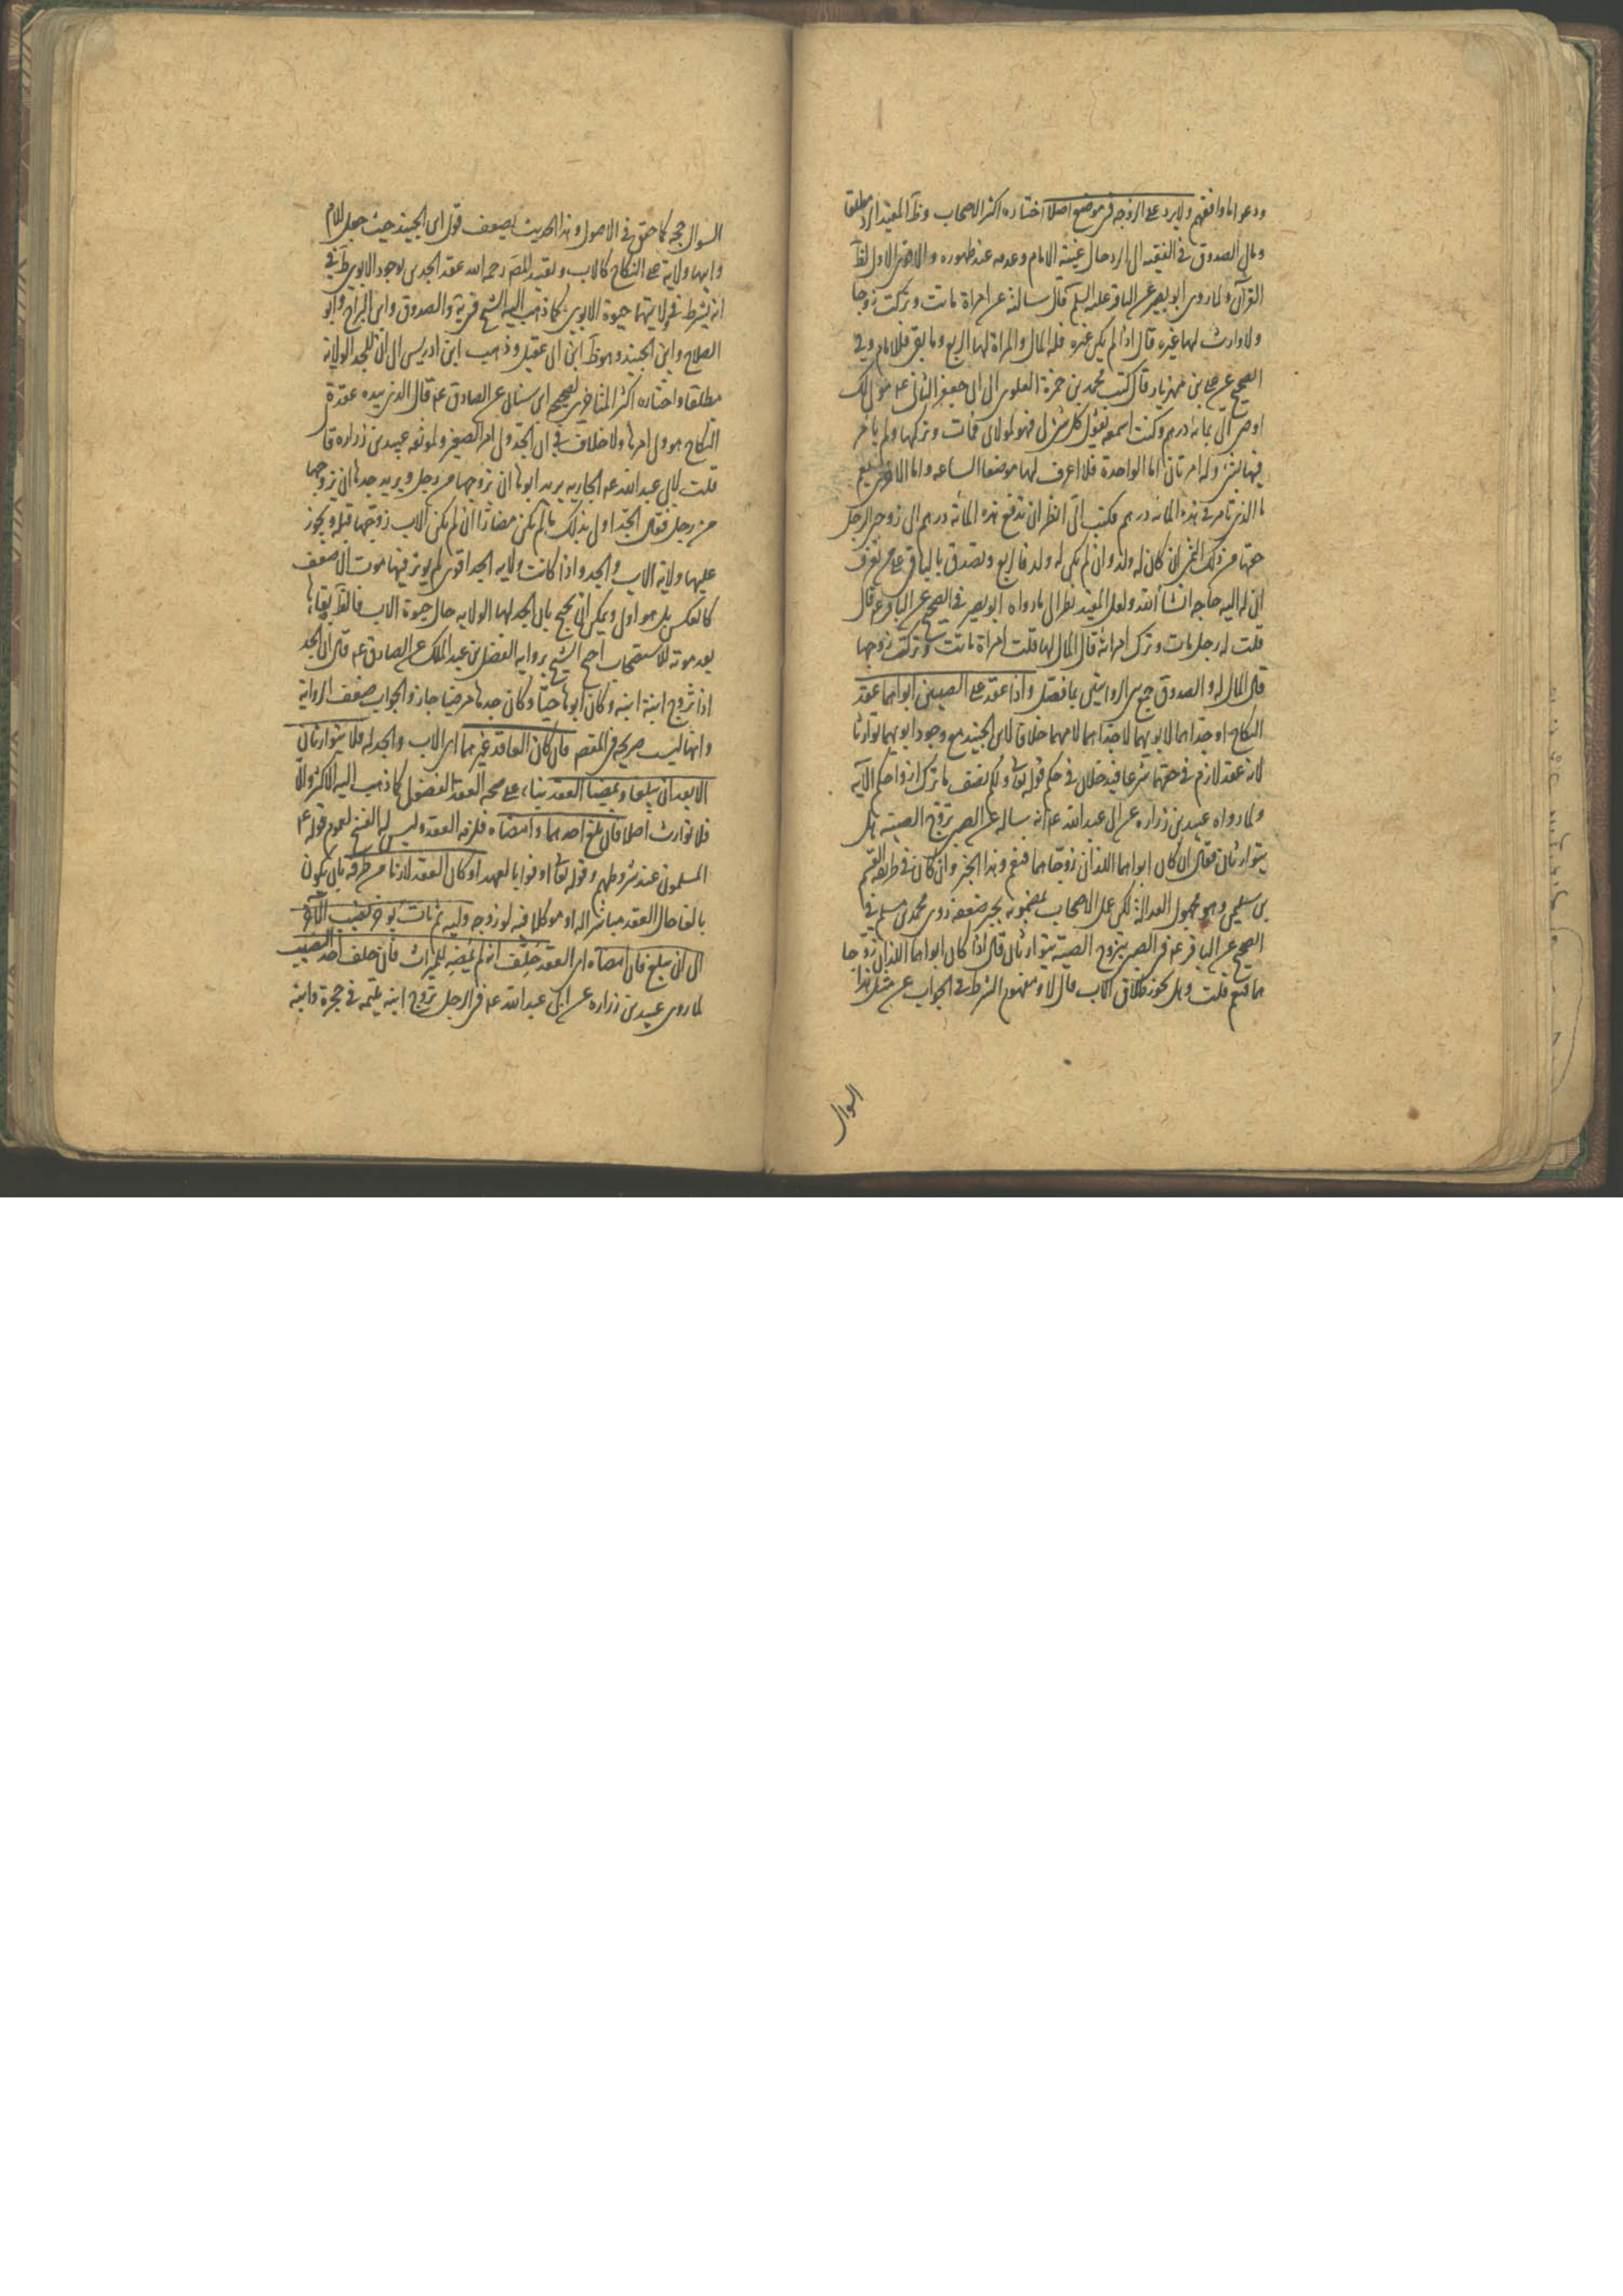 ودعواما وافقهم ولا يرد على الزوجة في موضع اصلا اختاره اكثر الاصحاب وظ المفيد الرد مطلقا
ومال الصدوق في الفقيه الى الرد حال غيبة الامام وعدمه عند ظهوره والاقوى الاول لظ
القرآن ولما روى ابو بصير عن الباقر عليه السلم قال سالته عن امراة ماتت وتركت زوجها
ولا وارث لها غيره قال اذا لم يكن غيره فله المال والمراة لها الربع وما بقى فللامام وفي
الصحيح عن على بن مهزيار قال كتب محمد بن حمزة العلوى الى ابى جعفر الثانى عه مولى لك
اوصى الى بمائة درهم وكنت اسمعه يقول كل شئ لى فهو لمولاى فمات وتركها ولم يامر
فيها بشئ وله امرتان اما الواحدة فلا اعرف لها موضعا الساعه واما الاخرى بقم
ما الذى تامر فى هذه المائه درهم فكتب الى انظر ان تدفع هذه المائه درهم الى زوجتى الرجل
حقها من ذلك الثمن ان كان له ولد وان لم يكن له ولد فالربع وتصدق بالباقى على من تعرف
ان له اليه حاجه انشا الله ولعل المفيد نظر الى ما رواه ابو بصير فى الصحيح عن الباقر عه قال
قلت له رجل مات وترك امراته قال المال لها قلت امراة ماتت وتركت زوجها
قال المال له والصدوق جمع بين الروايتين بما فصل واذا عقد على الصبيين ابواهما عقد
النكاح او جداهما لابويهما لا جداهما لامهما خلافا لابن الجنيد مع وجود ابويهما توارثا
لانه عقد لازم فى حقهما شرعا فيدخلان فى حكم قوله تعالى ولكم نصف ما ترك ازواجكم الآية
ولما رواه عبيد بن زراره عن ابى عبد الله عه انه ساله عن الصبى تزوج الصبية هل
يتوارثان فقال ان كان ابواهما اللذان زوجاهما فنعم وهذا الخبر وان كان فى طريقه القسم
بن سليمن وهو مجهول العدالة لكن عمل الاصحاب بمضمونه يجبر ضعفه روى محمد بن مسلم فى
الصحيح عن الباقر عه فى الصبى يتزوج الصبية يتوارثان قال اذا كان ابواهما اللذان زوجا
هما فنعم قلت وهل يجوز طلاق الاب قال لا ومفهوم الشرط فى الجواب عن مثل هذا
السوال
السوال حجه كما حقق فى الاصول وهذا الحديث يضعف قول ابن الجنيد حيث جعل للام
وابيها ولاية على النكاح كالاب وتقييد المص رحمه الله عقد الجدين بوجود الابوين فى
انه يشترط فى ولايتهما حيوة الابوين كما ذهب اليه الشيخ فى يه والصدوق وابن البراج وابو
الصلاح وابن الجنيد وهو ظ ابن ابى عقيل وذهب ابن ادريس الى ان للجد الولاية
مطلقا واختاره اكثر المتاخرين لصحيح ابن سنان عن الصادق عه قال الذى بيده عقدة
النكاح هو ولى امرها ولا خلاف فى ان الجد ولى امر الصغير ولموثقه عبيد بن زراره قا
قلت لابى عبد الله عه الجاريه يريد ابوها ان تزوجها من رجل ويريد جدها ان تزوجها
من رجل فقال الجد اولى بذلك ما لم يكن مضارا ان لم يكن الاب زوجها قبله ويجوز
عليهما ولاية الاب والجد واذا كانت ولاية الجد اقوى لم يوثر فيها موت الاضعف
كالعكس بل هو اولى ويمكن ان يحتج بان الجد لها الولايه حال حيوة الاب فالظ بقاءها
بعد موته للاستصحاب احتج الشيخ بروايه الفضل بن عبد الملك عن الصادق عه قال ان الجد
اذا زوج ابنة ابنه وكان ابوها حيا وكان جدها مرضيا جاز والجواب ضعف الرواية
وانها ليست صريحه فى المقصد فان كان العاقد غيرهما اى الاب والجد له فلا يتوارثان
الا بعد ان يبلغا ويمضيا العقد بناء على صحه العقد الفضولى كما ذهب اليه الاكثر والا
فلا توارث اصلا فان بلغ احدهما وامضاه فلزمه العقد وليس له الفسخ لعموم قوله عه
المسلمون عند شروطهم وقوله تعالى اوفوا بالعهد او كان العقد لازما من طرفه بان يكون
بالغا حال العقد مباشرا له او موكلا فيه لو زوجه وليه ثم مات يوقف نصيب الآخر
الى ان يبلغ فان امضاه اى العقد حلف انه لم يمضه للميراث فان حلف اخذ النصيب
لما روى عبيد بن زراره عن ابى عبد الله عه فى الرجل تزوج ابنه يتيمه فى حجره وابنه